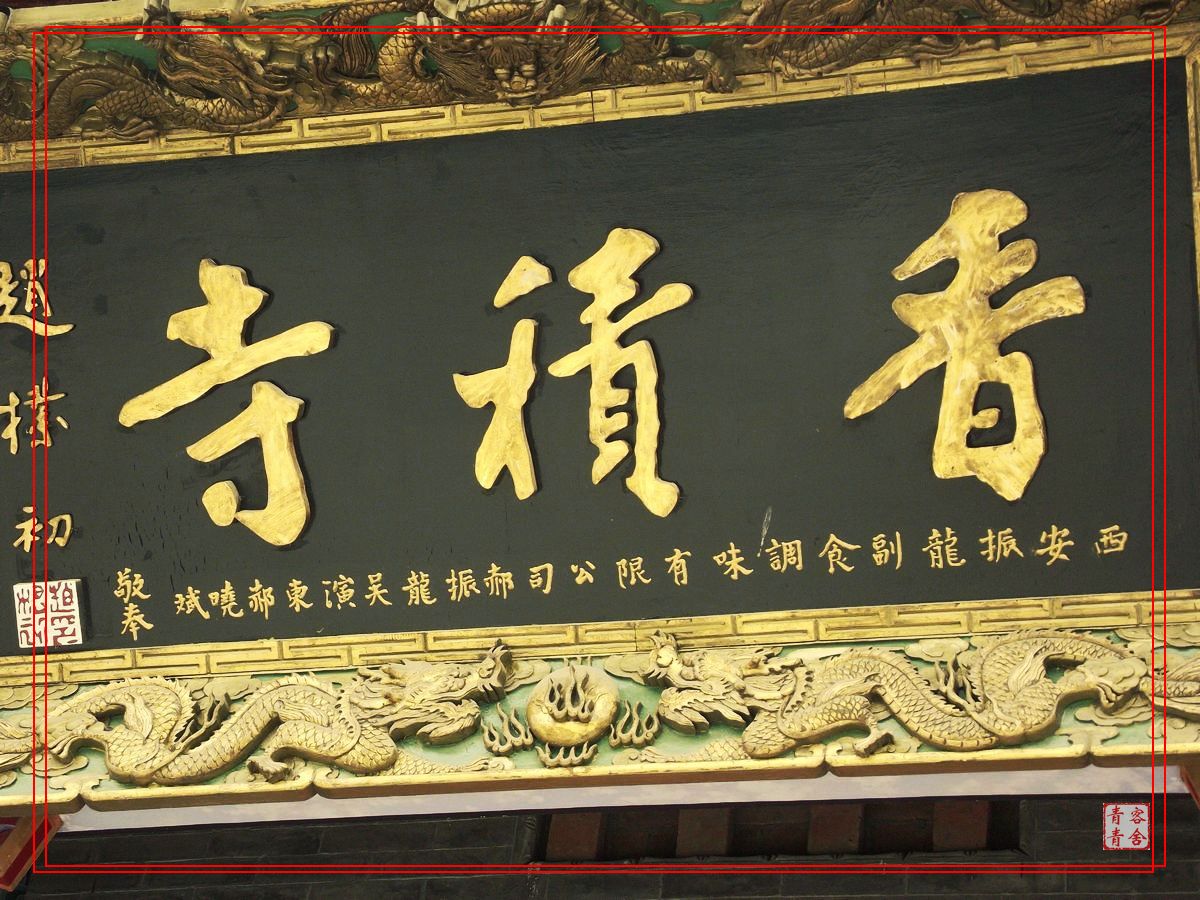 香積寺
趙樸初
西安振龍副食調味有限公司郝振龍吴演東郝曉斌
敬奉
客舍青青